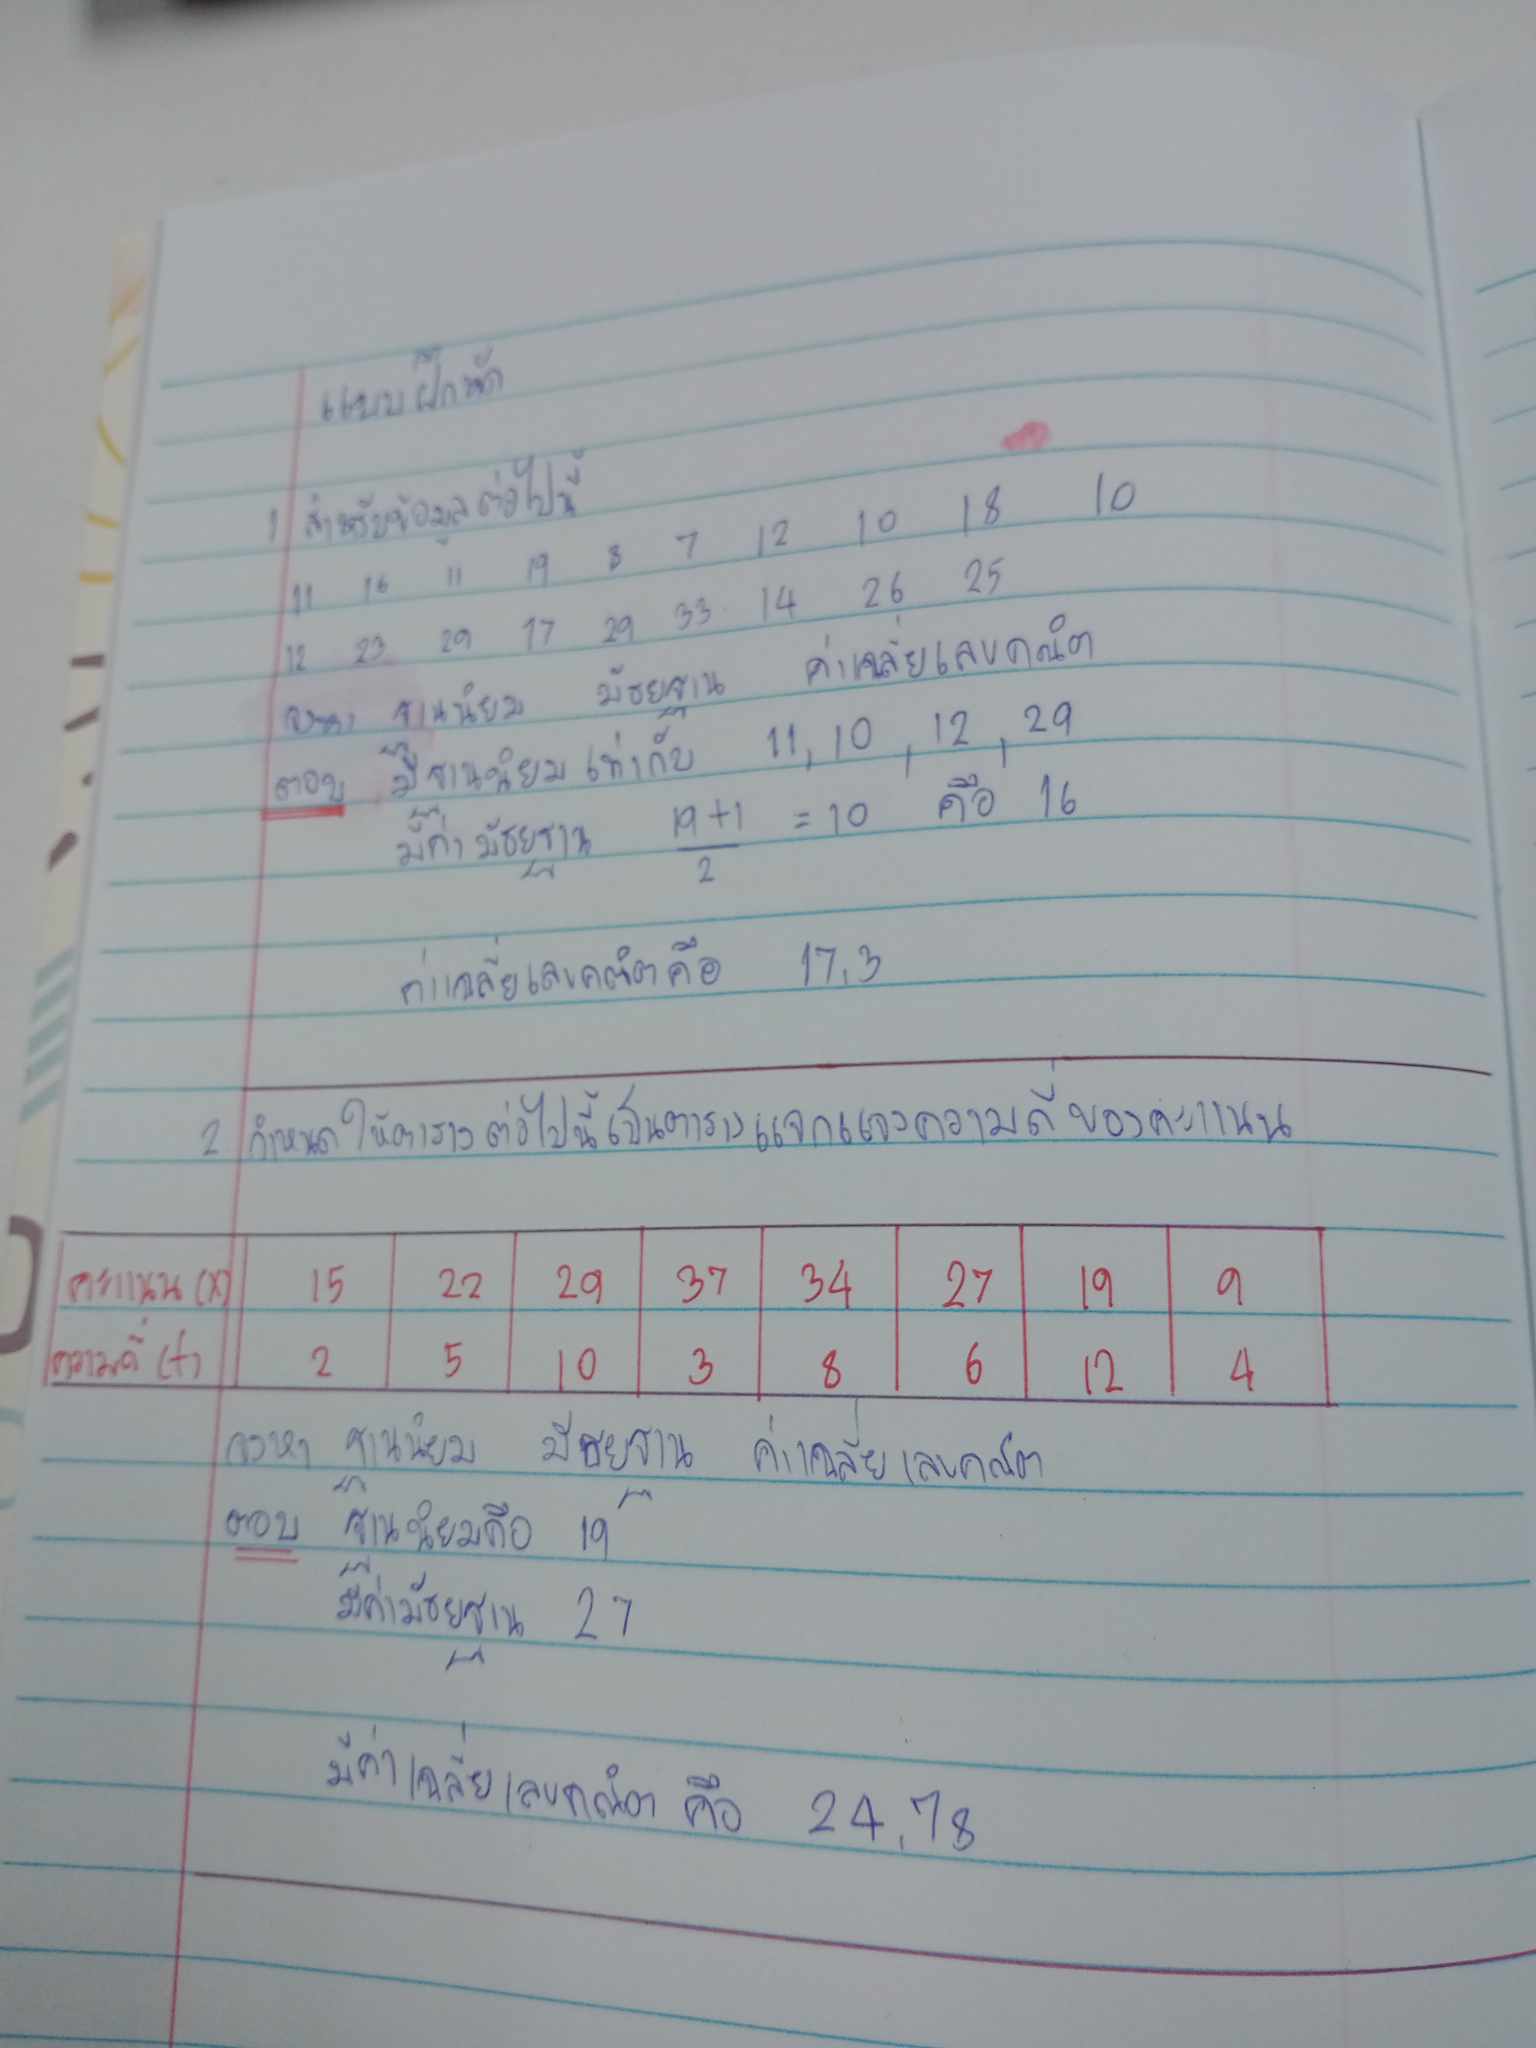 แบบฝึกหัด
1 สำหรับข้อมูลต่อไปนี้
11 16 11 19 8 7 12 10 18 10
12 23 29 17 29 33 14 26 25
จงหา ฐานนิยม มัธยฐาน ค่าเฉลี่ยเลขคณิต
ตอบ มีฐานนิยม เท่ากับ 11, 10, 12, 29
มีค่า มัธยฐาน 19+1 = 10 คือ 16
2
ค่าเฉลี่ยเลขคณิต คือ 17.3
2 กำหนดให้ตาราง ต่อไปนี้ เป็นตารางแจกแจงความถี่ ของคะแนน
คะแนน (X) 15 22 29 37 34 27 19 9
ความถี่ (f) 2 5 10 3 8 6 12 4
จงหา ฐานนิยม มัธยฐาน ค่าเฉลี่ยเลขคณิต
ตอบ ฐานนิยมคือ 19
มีค่ามัธยฐาน 27
มีค่าเฉลี่ยเลขคณิต คือ 24.78